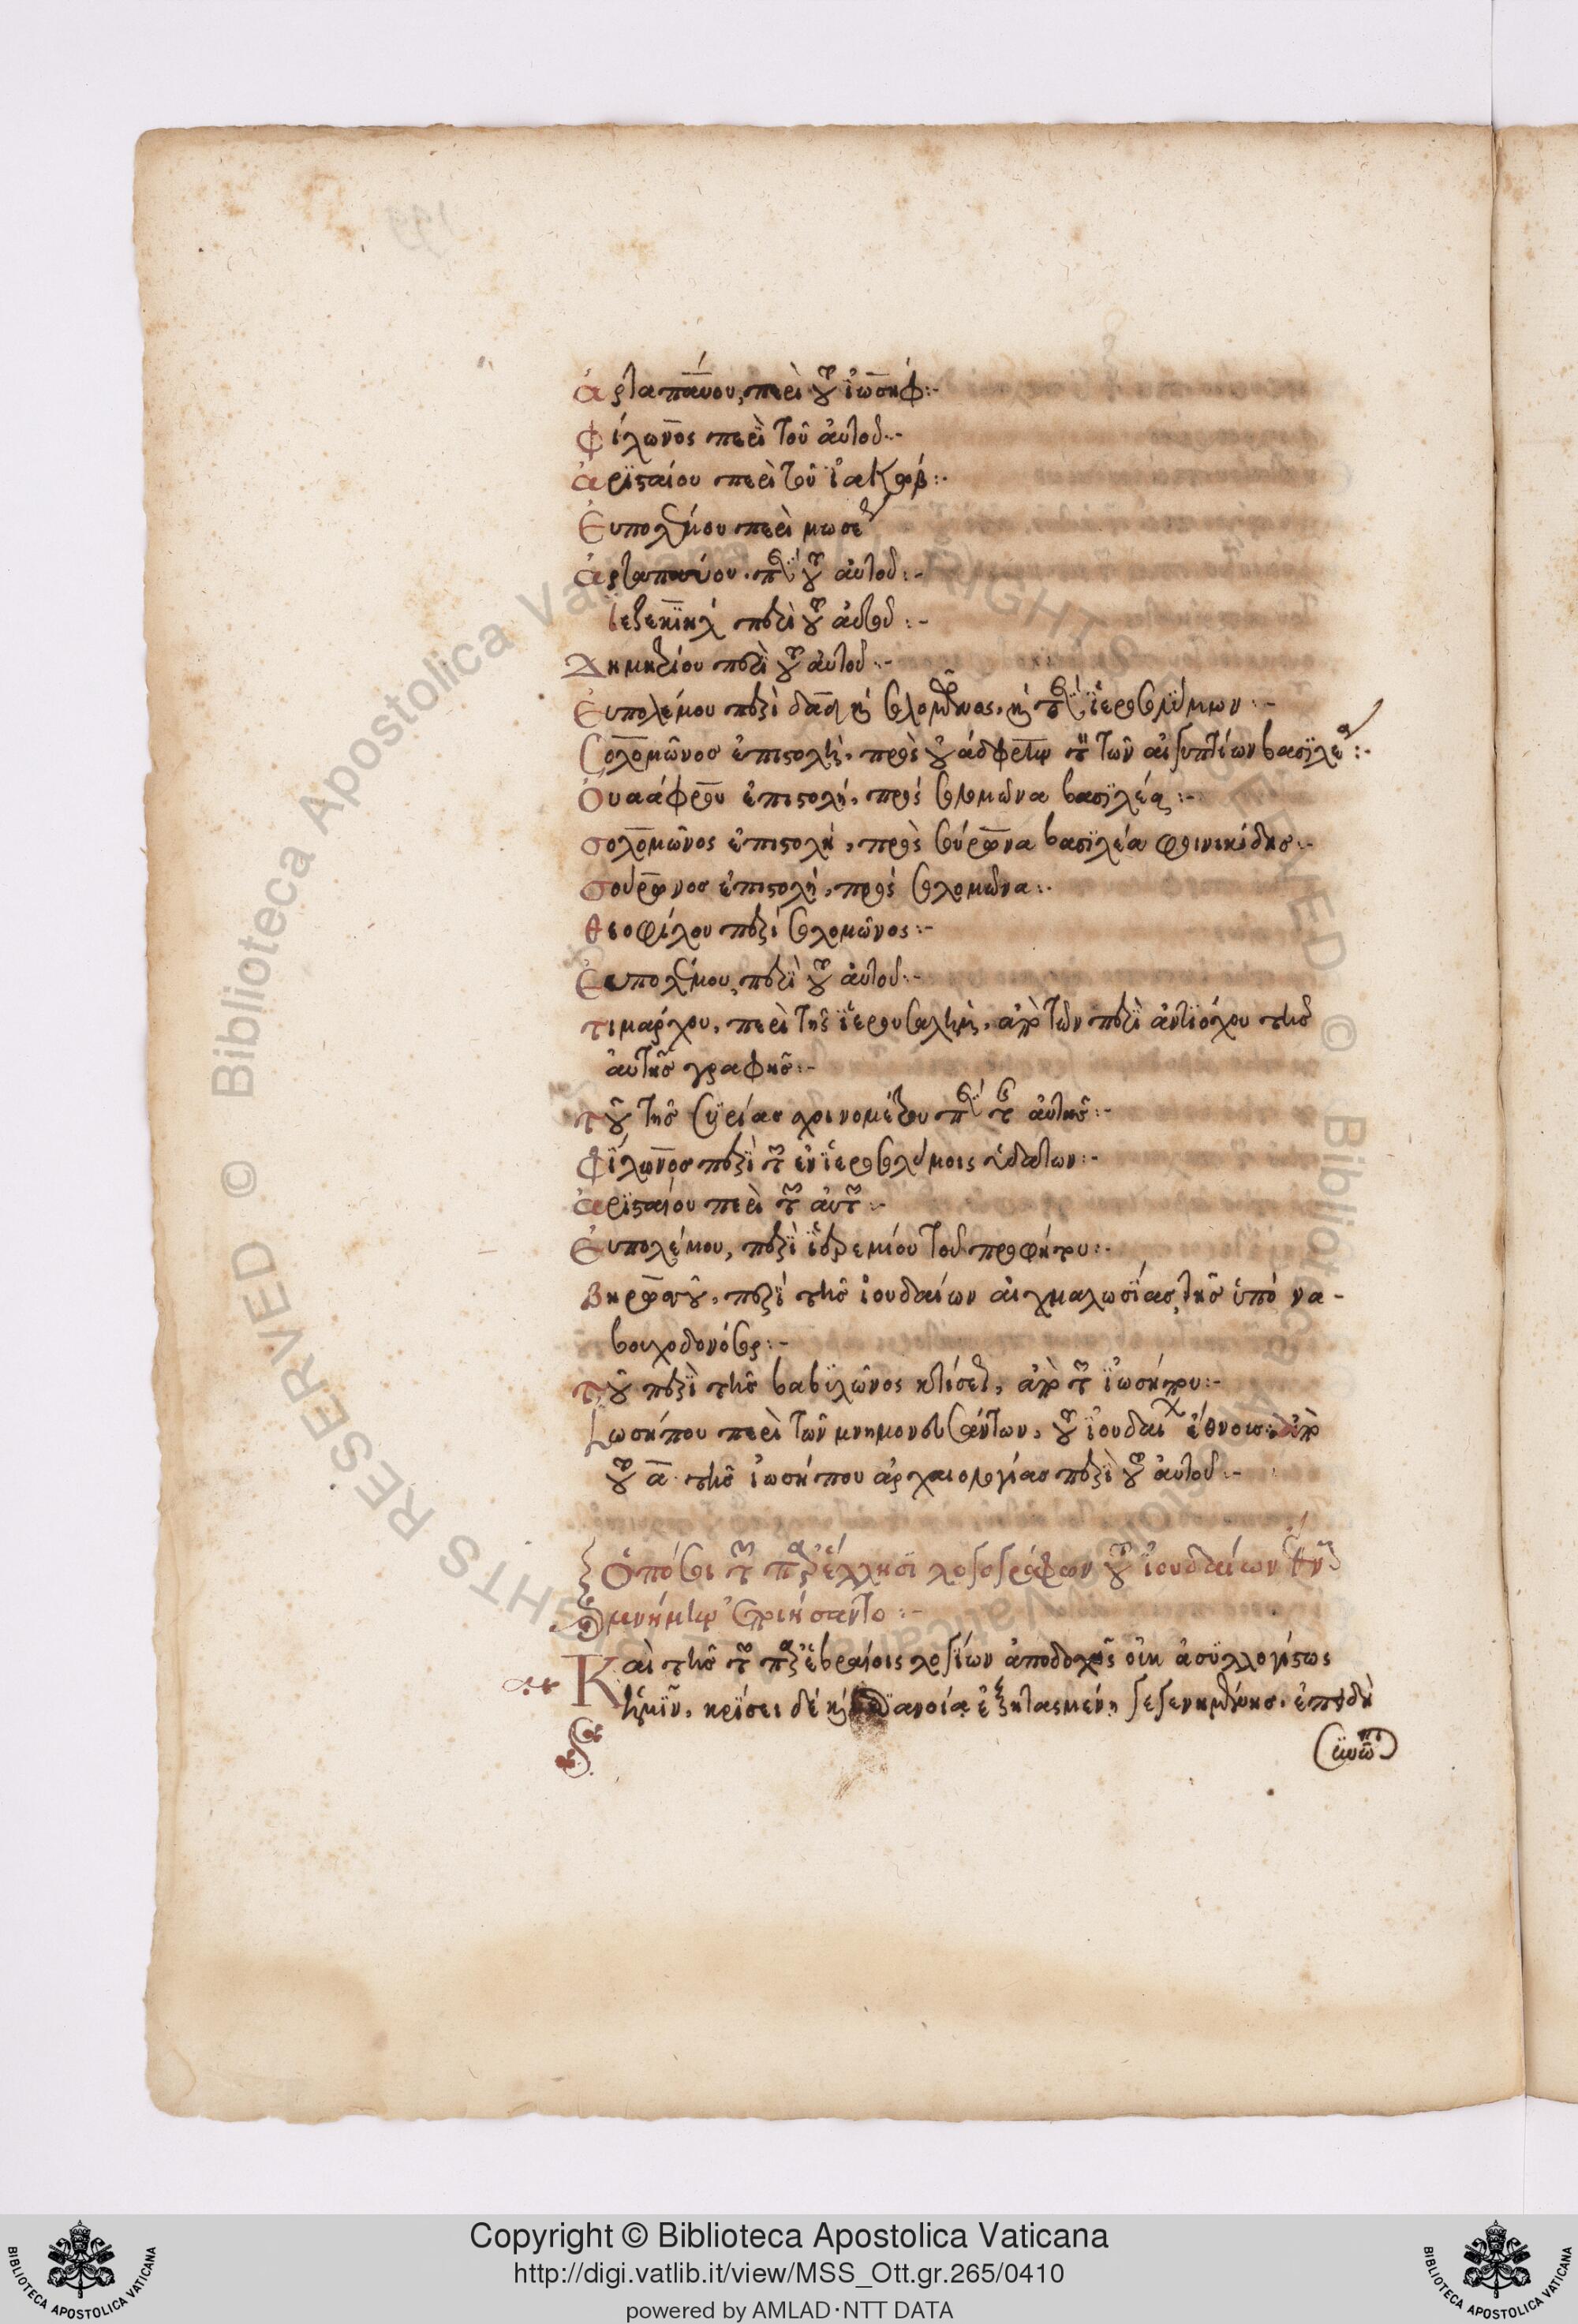 ἀρταπάνου, περὶ τοῦ ἰωσήφ:-
φίλωνος περὶ τοῦ αὐτοῦ:-
ἀρισταίου περὶ τοῦ ἰακώβ:-
Εὐπολέμου περὶ μωσέως
ἀρταπάνου. περὶ τοῦ αὐτοῦ:-
ἰεζεκιήλ περὶ τοῦ αὐτοῦ:-
Δημητρίου περὶ τοῦ αὐτοῦ:-
Εὐπολέμου περὶ δαδ καὶ σολομῶνος, καὶ περὶ ἱεροσολύμων:-
Σολομῶνος ἐπιστολὴ, πρὸς τῶν αἰγυπτίων βασιλέα:-
Οὐαάφρου ἐπιστολή, πρὸς σολομῶνα βασιλέα:-
σολομῶνος ἐπιστολὴ, πρὸς σούρωνα βασιλέα φοινικίδης:-
σούρωνος ἐπιστολή, πρὸς σολομῶνα:-
θεοφίλου περὶ σολομῶνος:-
Εὐπολέμου, περὶ τοῦ αὐτοῦ:-
τιμάρχου, περὶ τῆς ἱερουσαλήμ, ἀπὸ τῶν περὶ ἀντιόχου τῆς
αὐτῆς γραφῆς:-
τοῦ τῆς συρίας σχοινομέτρου περὶ τῆς αὐτῆς:-
φίλωνος περὶ τῶν ἐν ἱεροσολύμοις ὑδάτων:-
ἀρισταίου περὶ τῶν αὐτῶν:-
Εὐπολέμου, περὶ ἱερεμίου τοῦ προφήτου:-
Βηρωσοῦ, περὶ τῆς ἰουδαίων αἰχμαλωσίας, τῆς ὑπὸ να-
βουχοδονόσορ:-
τοῦ περὶ τῆς βαβυλῶνος κτίσεως, ἀπὸ τῶν ἰωσήπου:-
ἰωσήπου περὶ τῶν μνημονευσάντων, τοῦ ἰουδαϊκοῦ ἔθνους: ἀπὸ
τοῦ α τῆς ἰωσήπου ἀρχαιολογίας περὶ τοῦ αὐτοῦ:-
Ὁπόσοι τῶν παρ' ἕλλησι λογογράφων τοῦ ἰουδαίων ἔθνους
ἐμνημόνευσαν
Καὶ τῆς τῶν παρ' ἑβραίοις λογίων ἀποδοχῆς οὐκ ἀσυλλογίστως
ἡμῖν, κρίσει δὲ καὶ διανοίᾳ ἐξητασμένῃ γεγενημένης. ἐπειδὴ
Copyright © Biblioteca Apostolica Vaticana
http://digi.vatlib.it/view/MSS_Ott.gr.265/0410
powered by AMLAD·NTT DATA